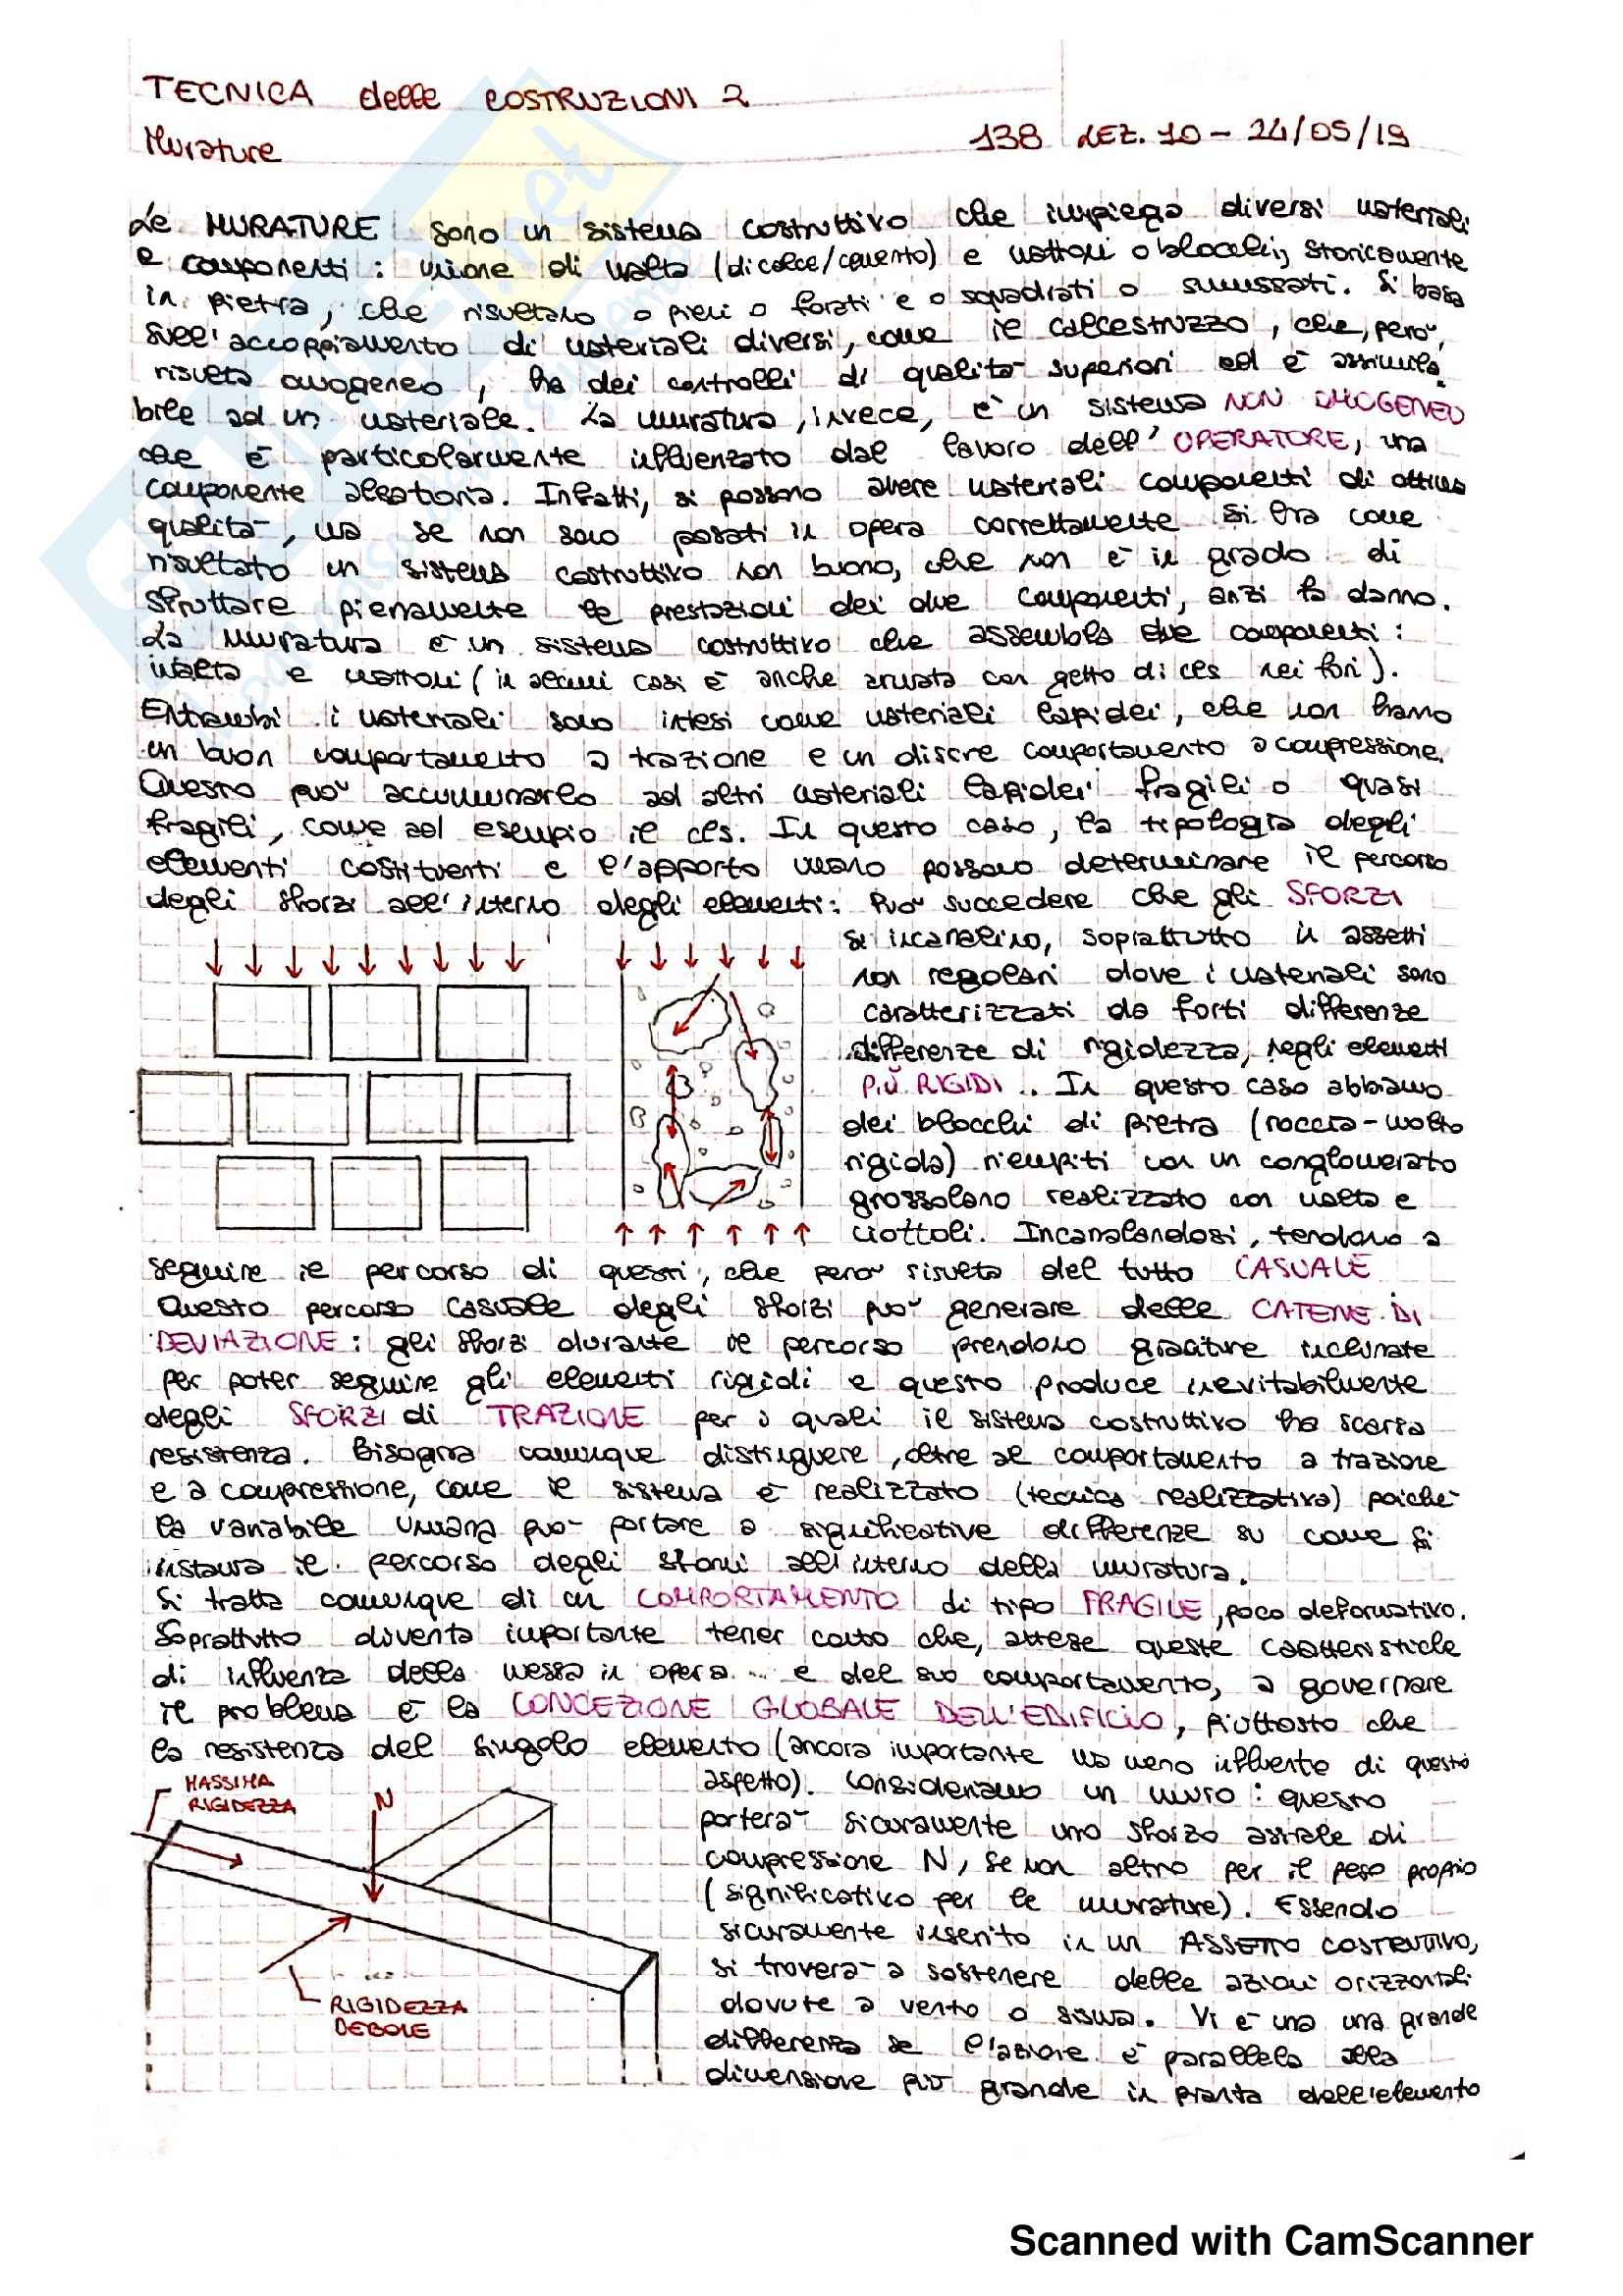 TECNICA delle COSTRUZIONI 2
Murature
138 LEZ. 10 - 24/05/19
Le MURATURE sono un sistema costruttivo che impiega diversi materiali
e componenti: unione di malta (di calce/cemento) e mattoni o blocchi, storicamente
in pietra, che risultano o pieni o forati e o squadrati o smussati. Si basa
sull'accoppiamento di materiali diversi, come il calcestruzzo, che, però,
risulta omogeneo, ha dei controlli di qualità superiori ed è assimila
bile ad un materiale. La muratura, invece, è un sistema NON OMOGENEO
che è particolarmente influenzato dal lavoro dell'OPERATORE, una
componente aleatoria. Infatti, si possono avere materiali componenti di ottima
qualità, ma se non sono posati in opera correttamente si ha come
risultato un sistema costruttivo non buono, che non è in grado di
sfruttare pienamente le prestazioni dei due componenti, anzi fa danno.
La muratura è un sistema costruttivo che assembla due componenti:
malta e mattoni (in alcuni casi è anche armata con getto di cls nei fori).
Entrambi i materiali sono intesi come materiali lapidei, che non hanno
un buon comportamento a trazione e un discre comportamento a compressione.
Questo può accumunarlo ad altri materiali lapidei fragili o quasi
fragili, come ad esempio il cls. In questo caso, la tipologia degli
elementi costituenti e l'apporto umano possono determinare il percorso
degli sforzi all'interno degli elementi: Può succedere che gli SFORZI
si incanalino, soprattutto in assetti
non regolari dove i materiali sono
caratterizzati da forti differenze
differenze di rigidezza, negli elementi
PIÙ RIGIDI.. In questo caso abbiamo
dei blocchi di pietra (roccia-molto
rigida) riempiti con un conglomerato
grossolano realizzato con malta e
ciottoli. Incanalandosi, tendono a
seguire il percorso di questi, che però risulta del tutto CASUALE
Questo percorso casuale degli sforzi può generare delle CATENE DI
DEVIAZIONE: gli sforzi durante il percorso prendono giaciture inclinate
per poter seguire gli elementi rigidi e questo produce inevitabilmente
degli SFORZI di TRAZIONE per i quali il sistema costruttivo ha scarsa
resistenza. Bisogna comunque distinguere, oltre al comportamento a trazione
e a compressione, come il sistema è realizzato (tecnica realizzativa) poichè
la variabile umana può portare a significative differenze su come si
instaura il percorso degli sforzi all'interno della muratura.
Si tratta comunque di un COMPORTAMENTO di tipo FRAGILE, poco deformativo.
Soprattutto diventa importante tener conto che, attese queste caratteristiche
di influenza della messa in opera ... e del suo comportamento, a governare
il problema è la CONCEZIONE GLOBALE DELL'EDIFICIO, piuttosto che
la resistenza del singolo elemento (ancora importante ma meno influente di questo
aspetto). Consideriamo un muro: questo
porterà sicuramente uno sforzo assiale di
compressione N, se non altro per il peso proprio
(significativo per le murature). Essendo
sicuramente inserito in un ASSETTO COSTRUTTIVO,
si troverà a sostenere delle azioni orizzontali
dovute a vento o sisma. Vi è una una grande
differenza se l'azione è parallela alla
dimensione più grande in pianta dell'elemento
MASSIMA
RIGIDEZZA
N
RIGIDEZZA
DEBOLE
Scanned with CamScanner